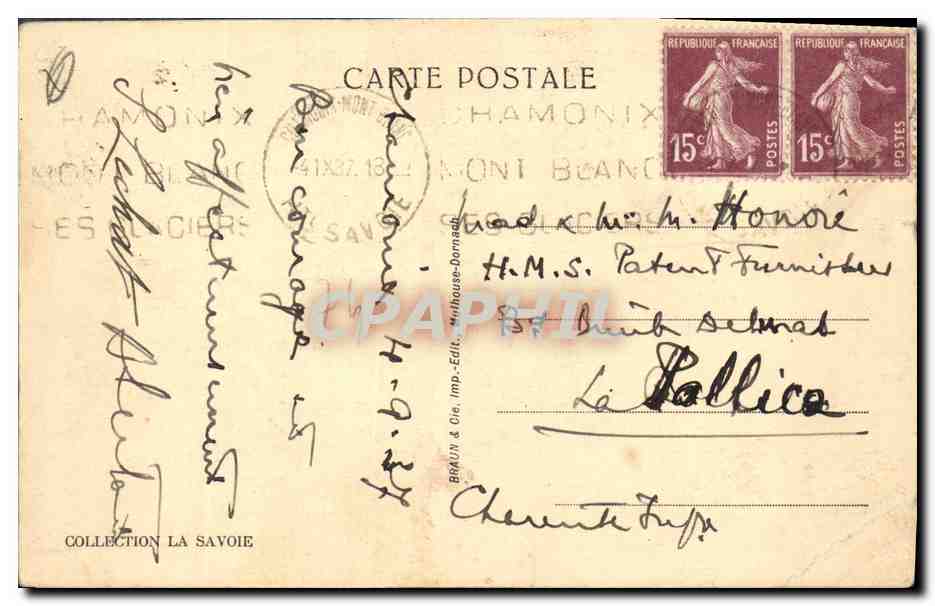 CARTE POSTALE
REPUBLIQUE FRANÇAISE
15c
POSTES
REPUBLIQUE FRANÇAISE
15c
POSTES
CHAMONIX
MONT BLANC
SES GLACIERS
CHAMONIX-MONT-BLANC
4 IX 37
HTE SAVOIE
CHAMONIX
MONT BLANC
SES GLACIERS
Chamonix 4-9-37
Bon courage et
bien affectueusement
Mad & Mr M. Honoré
H.M.S. Patent Furnisher
Bd Emile Delmas
La Pallice
Charente Infre
BRAUN & Cie, Imp.-Edit., Mulhouse-Dornach
COLLECTION LA SAVOIE
CPAPHIL